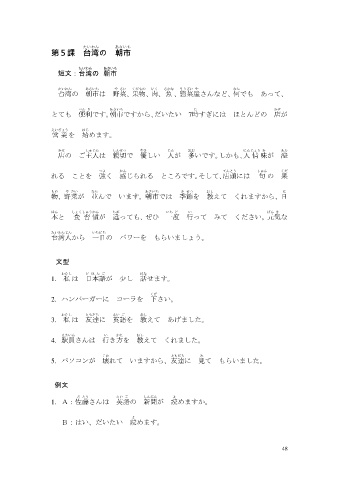 第５課　台湾の　朝市
短文：台湾の　朝市
台湾の　朝市は　野菜、果物、肉、魚、惣菜屋さんなど、何でも　あって、
とても　便利です。朝市ですから、だいたい　昼すぎには　ほとんどの　店が
営業を　始めます。
店の　ご主人は　親切で　優しい　人が　多いです。しかも、人情味が　溢
れる　ことを　強く　感じられる　ところです。そして、店頭には　旬の　果
物、野菜が　並んで　います。朝市では　季節を　教えて　くれますから、日
本と　食習慣が　違っても、ぜひ　一度　行って　みて　ください。元気な
台湾人から　一日の　パワーを　もらいましょう。
文型
1. 私は　日本語が　少し　話せます。
2. ハンバーガーに　コーラを　下さい。
3. 私は　友達に　英語を　教えて　あげました。
4. 駅員さんは　行き方を　教えて　くれました。
5. パソコンが　壊れて　いますから、友達に　見て　もらいました。
例文
1. A：佐藤さんは　英語の　新聞が　読めますか。
B：はい、だいたい　読めます。
48